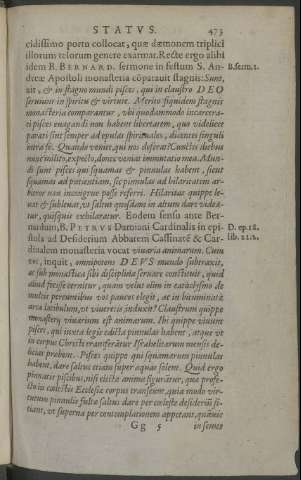 STATVS. 473
cidissimo portu collocat, quæ dæmonem triplici
illorum telorum genere exarmat. Recte ergo alibi
idem B. BERNARD. sermone in festum S. An-
B. Serm. 1.
dreæ Apostoli monasteria cōparauit stagnis: Sunt,
ait, & in stagno mundi pisces, qui in claustro DEO
seruiunt in spiritu & virtute. Merito siquidem stagnis
monasteria comparantur, vbi quodammodo incarcera-
ti pisces euagandi non habent libertatem, quo videlicet
parati sint semper ad epulas spirituales, dicentes singuli
intra se. Quando veniet, qui nos deferat? Cunctis diebus
nunc milito, expecto, donec veniat immutatio mea. Mun-
di sunt pisces qui squamas & pinnulas habent, sicut
squamas ad patientiam, sic pinnulas ad hilaritatem ar-
bitror non incongrue posse referri. Hilaritas quippe le-
uat & subleuat, vt saltus quosdam in altum dare videa-
tur, quisquis exhilaratur. Eodem sensu ante Ber-
nardum, B. PETRVS Damiani Cardinalis in epi-
D. ep. 18.
stola ad Desiderium Abbatem Cassinatē & Car-
lib. 2.
dinalem monasteria vocat viuaria animarum. Cum
vos, inquit, omnipotens DEVS mundo subtraxit,
ac sub monastica sibi disciplina seruire constituit, quid
aliud fecisse cernitur, quam velut olim in cataclysmo de
multis pereuntibus vos pauces elegit, ac in bituminatæ
arca latibulum, vt viueretis induxit? Claustrum quippe
monasterij viuarium est animarum. Ibi quippe viuunt
pisces, qui iuxta legis edicta pinnulas habent, atque vt
in corpus Christi transferātur Israhelitarum mensis de-
licias præbent. Pisces quippe qui squamarum pinnulas
habent, dare saltus etiam super aquas solent. Quid ergo
pinnatis piscibus, nisi electæ animæ figurātur, quæ profe-
cto in cælestis Ecclesiæ corpus transeunt, quia modo vir-
tutum pinnulis fultæ saltus dare per cæleste desideriū sci-
tiant, vt superna per contemplationem appetant, quāuis
Gg 5 in semet